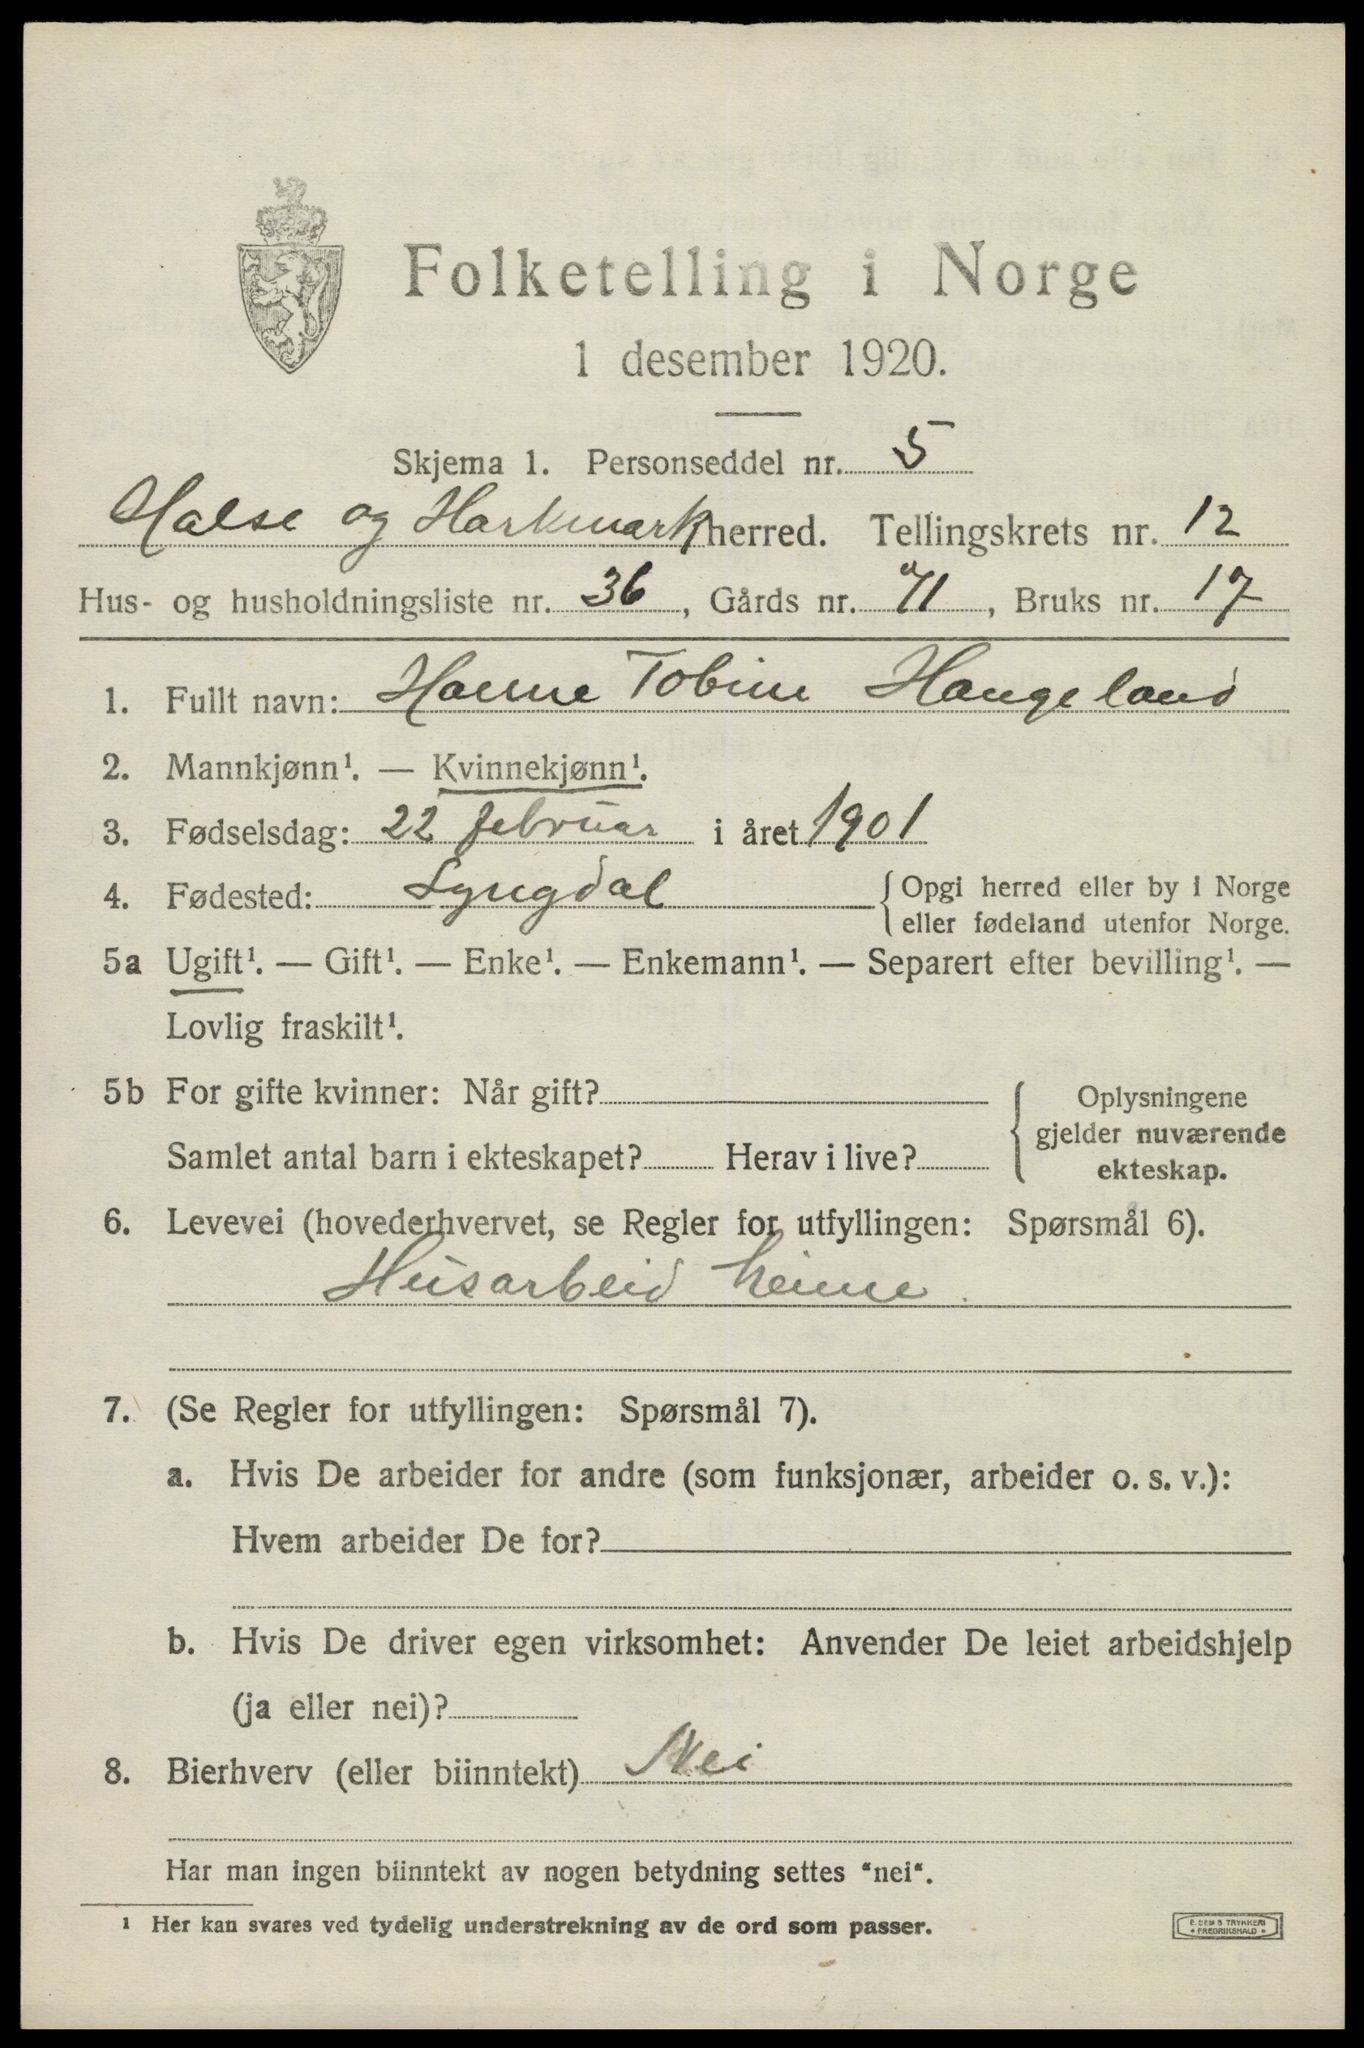 Folketelling i Norge
1 desember 1920.
Skjema 1. Personseddel nr. 5
Halse og Harkmark herred. Tellingskrets nr. 12
Hus- og husholdningsliste nr. 36, Gårds nr. 71, Bruks nr. 17
1. Fullt navn: Hanne Tobine Haugeland
2. Mannkjønn¹. — Kvinnekjønn¹.
3. Fødselsdag: 22 februar i året 1901
4. Fødested: Lyngdal { Opgi herred eller by i Norge
eller fødeland utenfor Norge.
5a Ugift¹. — Gift¹. — Enke¹. — Enkemann¹. — Separert efter bevilling¹. —
Lovlig fraskilt¹.
5b For gifte kvinner: Når gift?
Samlet antal barn i ekteskapet? Herav i live?
{ Oplysningene
gjelder nuværende
ekteskap.
6. Levevei (hovederhvervet, se Regler for utfyllingen: Spørsmål 6).
Husarbeid heime.
7. (Se Regler for utfyllingen: Spørsmål 7).
a. Hvis De arbeider for andre (som funksjonær, arbeider o. s. v.):
Hvem arbeider De for?
b. Hvis De driver egen virksomhet: Anvender De leiet arbeidshjelp
(ja eller nei)?
8. Bierhverv (eller biinntekt) Nei
Har man ingen biinntekt av nogen betydning settes "nei".
1 Her kan svares ved tydelig understrekning av de ord som passer.
E. SEM'S TRYKKERI
• FREDRIKSHALD •